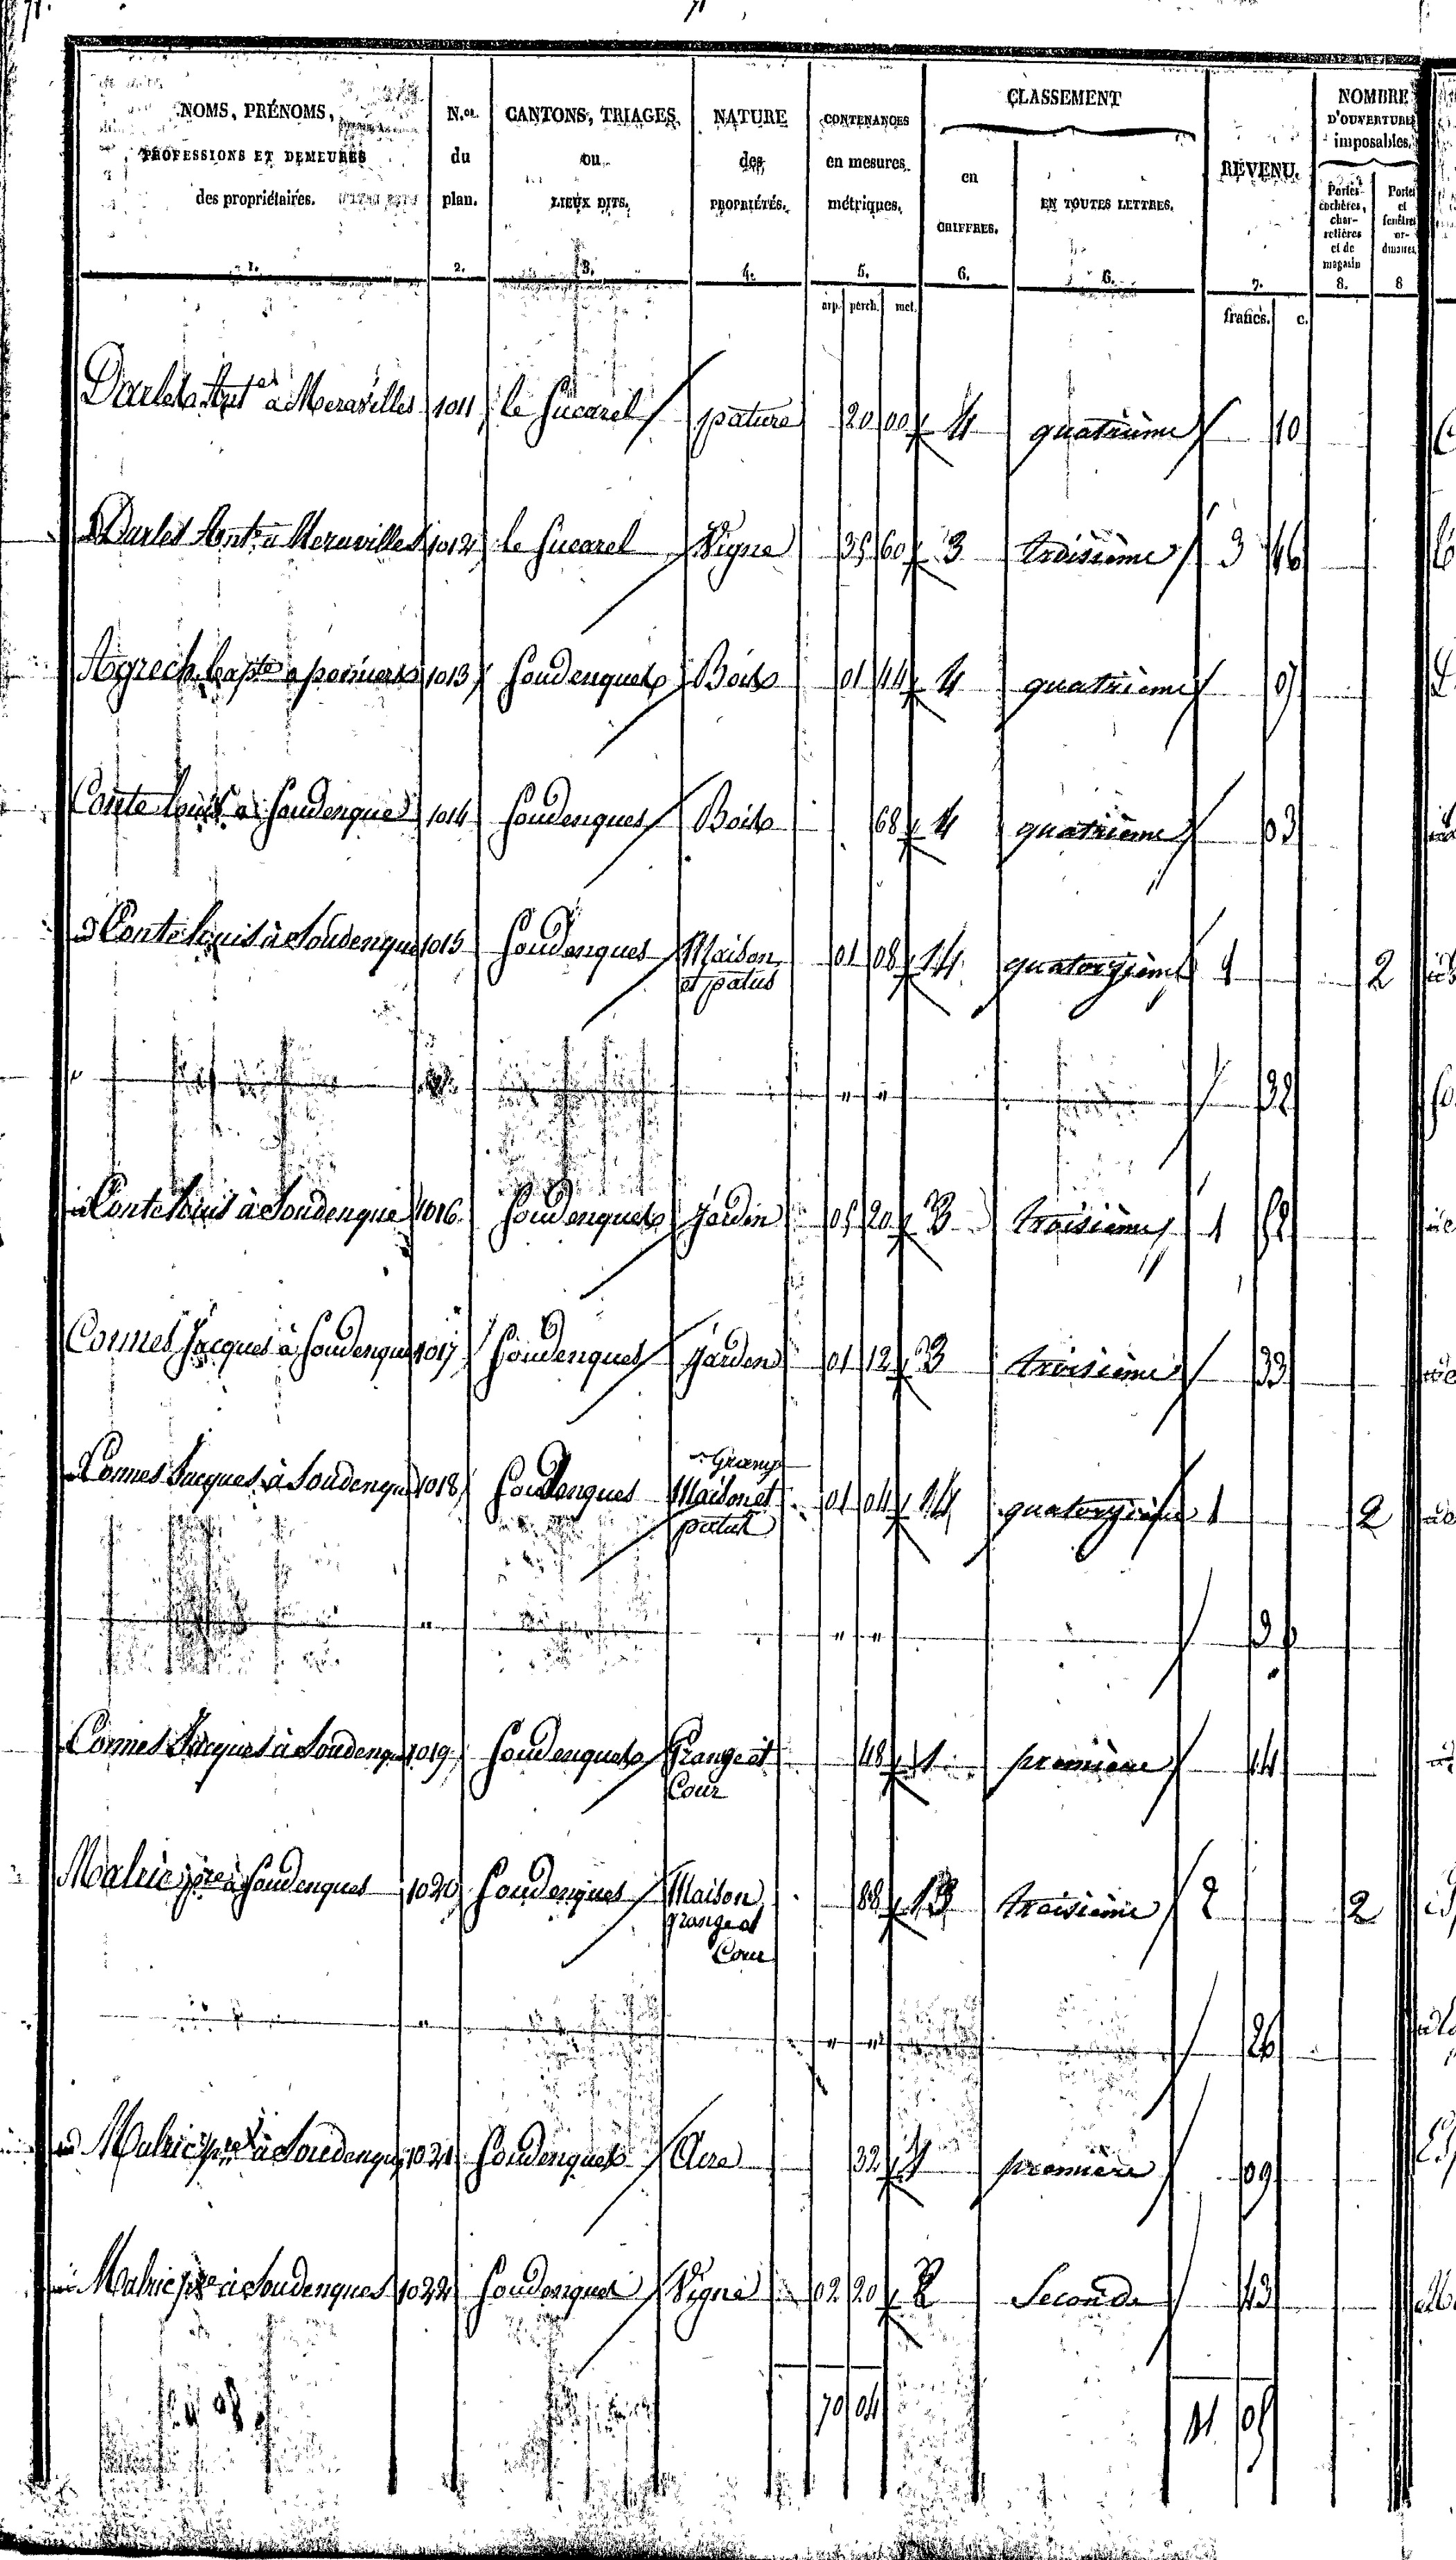 71.
NOMS, PRÉNOMS, PROFESSIONS ET DEMEURES des propriétaires.
N.os du plan.
CANTONS, TRIAGES ou LIEUX DITS.
NATURE des PROPRIÉTÉS.
CONTENANCES en mesures métriques.
CLASSEMENT
en CHIFFRES.
EN TOUTES LETTRES.
REVENU.
NOMBRE D'OUVERTURES imposables.
Portes cochères, charretières et de magasin
Portes et fenêtres ordinaires
1. 2. 3. 4. 5. 6. 6. 7. 8. 8
arp. perch. met. francs. c.
à Meravilles 1011 le Sucarel pature 20 00 4 quatrième 10
Darles Ant.e à Meravilles 1012 le Sucarel Vigne 35 60 3 troisième 3 46
Agrech bap.te 1013 Soudenques Bois 01 44 4 quatrième 07
Conte Louis à Soudenques 1014 Soudenques Bois 68 4 quatrième 03
Conte Louis à Soudenques 1015 Soudenques Maison 01 08 14 quatorzième 1 2
et patus
" " 32
Conte Louis à Soudenques 1016 Soudenques Jardin 05 20 3 troisième 1
Connes Jacques à Soudenques 1017 Soudenques Jardin 01 12 3 troisième 33
Grange
Connes Jacques à Soudenques 1018 Soudenques Maison et 01 04 14 quatorzième 1 2
patus
" " "
Connes Jacques à Soudenques 1019 Soudenques Grange et 48 1 première 14
Cour
Malric p.re à Soudenques 1020 Soudenques Maison 88 13 troisième 2 2
grange et
Cour
" " " 26
Malric p.re à Soudenques 1021 Soudenques Aire 32 1 première 09
Malric p.re à Soudenques 1022 Soudenques Vigne 02 20 2 Seconde 43
70 04 11 05